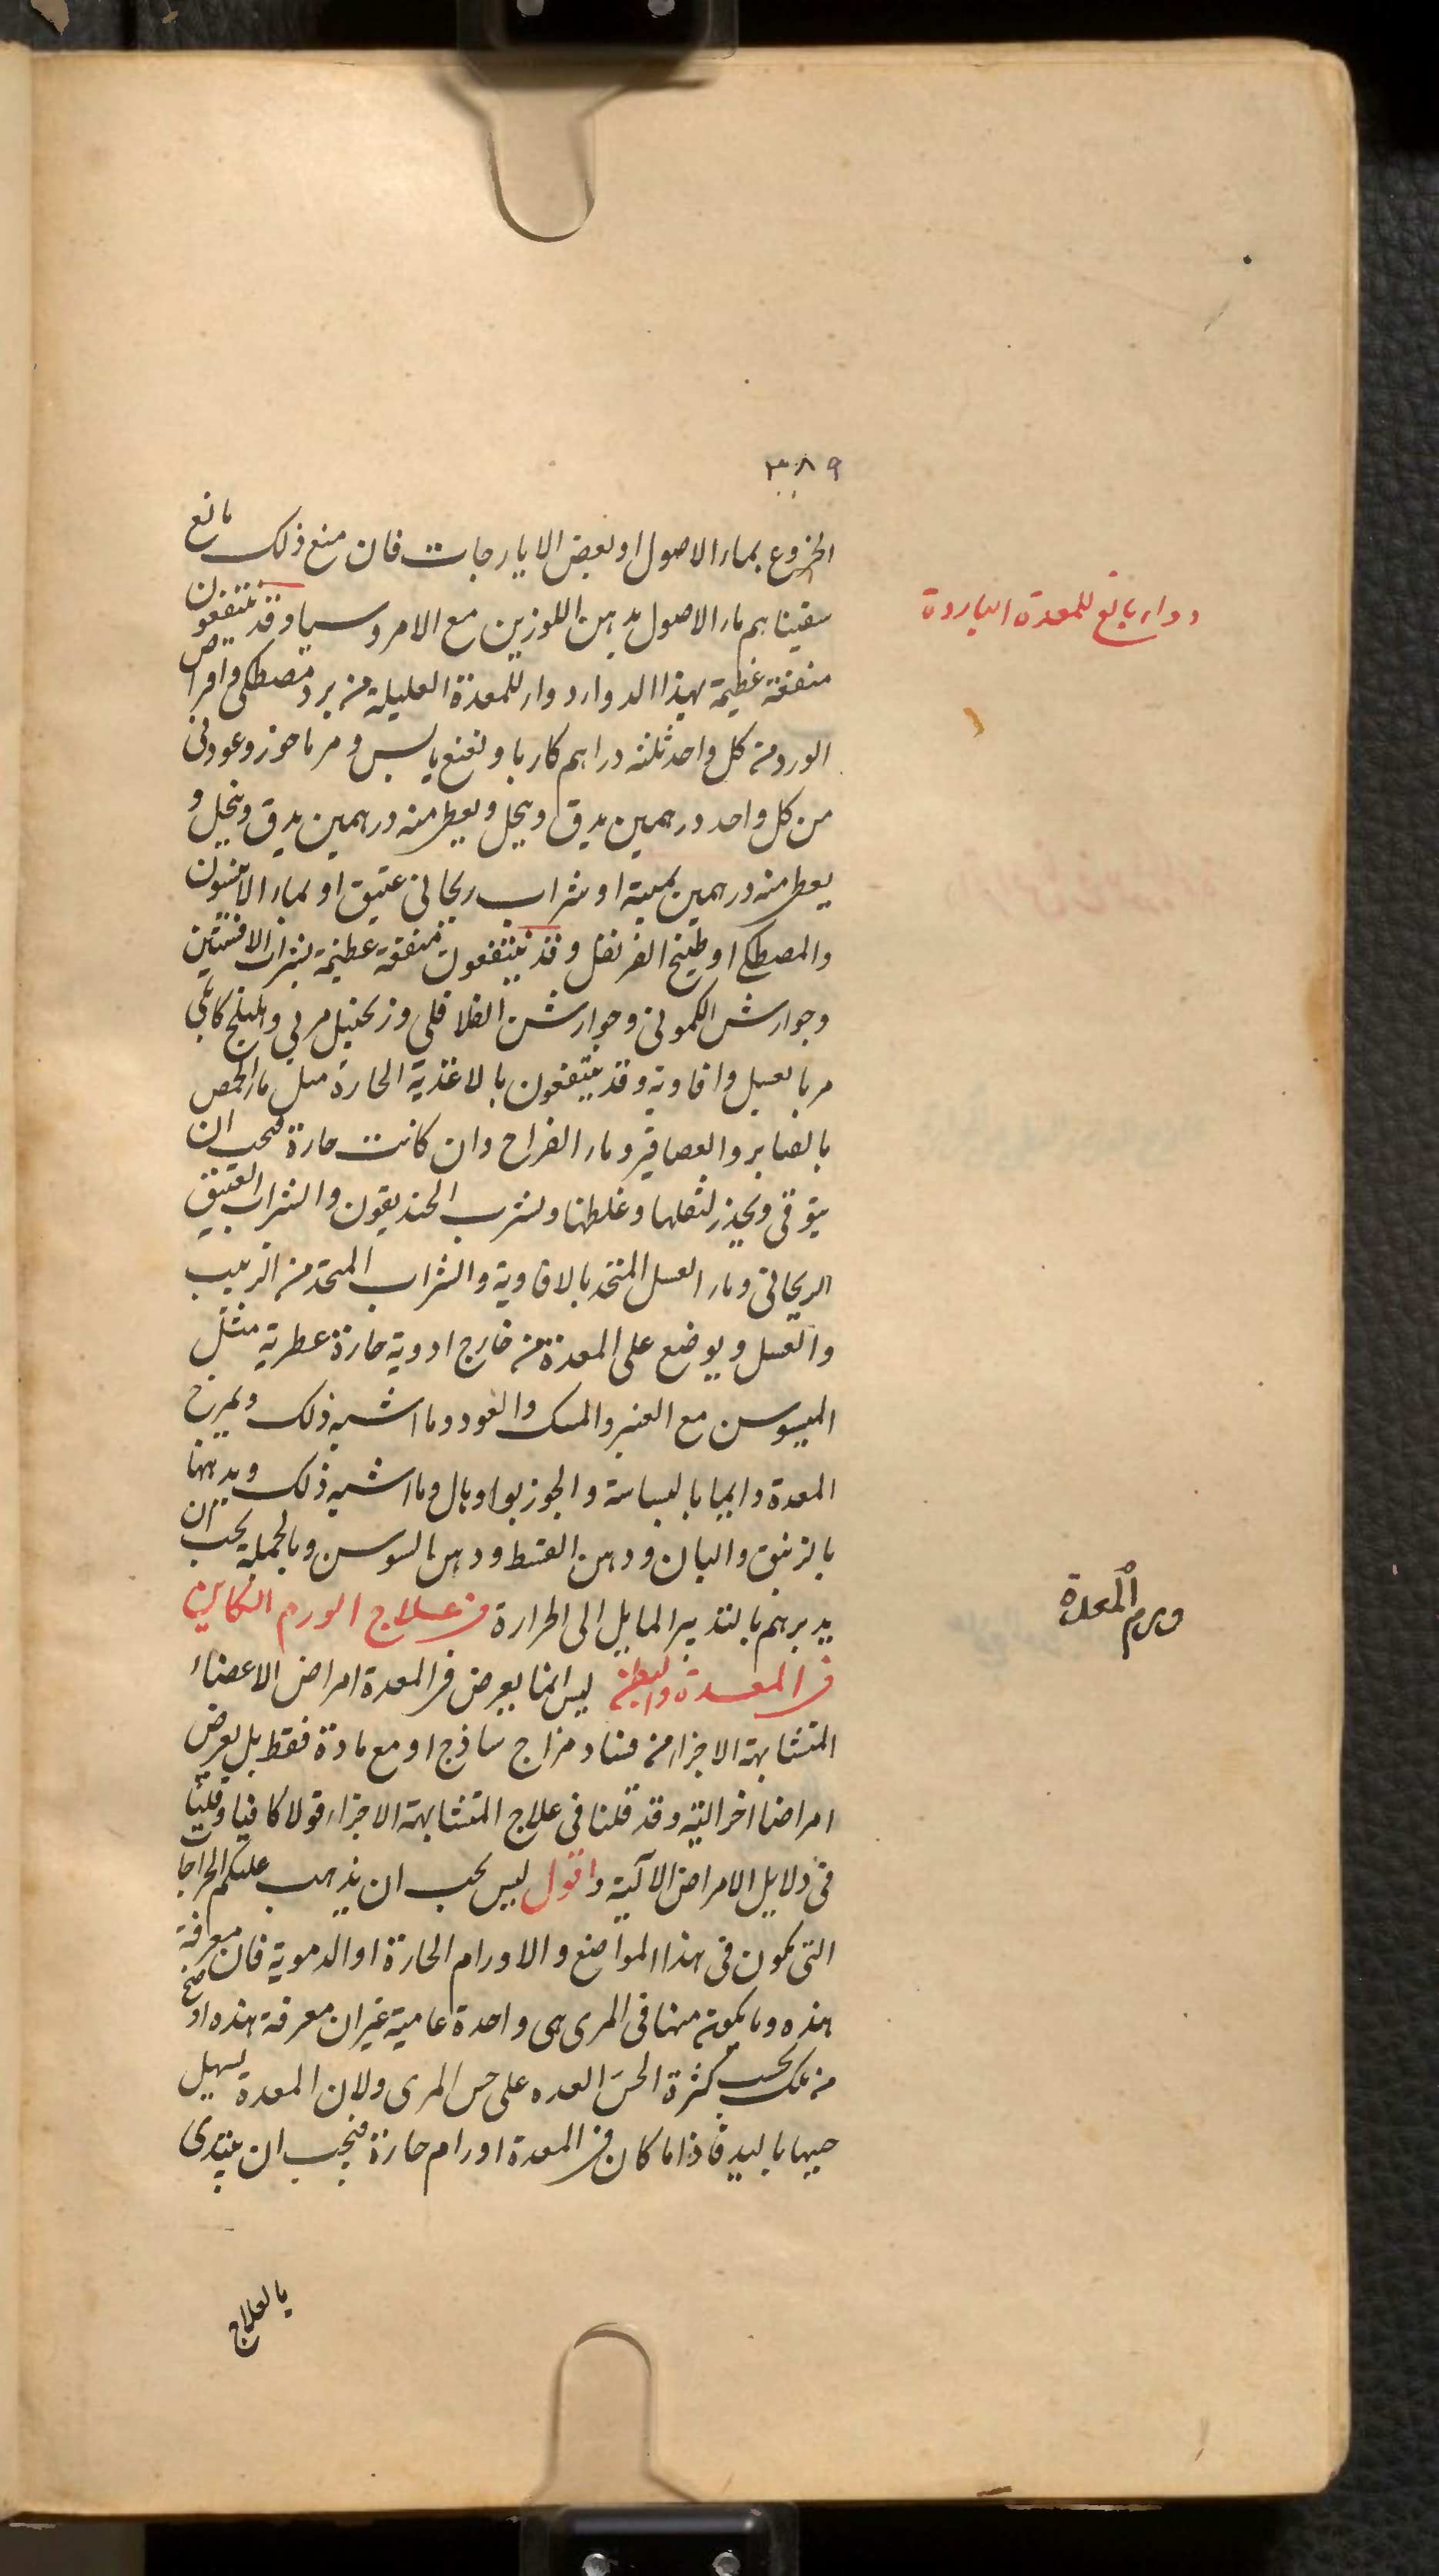 ٣٨٩
الخروع بماء الاصول او بعض الايارجات فان منع ذلك مانع
سقيناهم ماء الاصول بدهن اللوزين مع الامروسيا وقد ينتفعون
منفعة عظيمة بهذا الدواء دواء للمعدة العليلة من برد مصطكى واقراص
الورد من كل واحد ثلثه دراهم كاربا ونعنع يابس ومرماحوز وعود نى
من كل واحد درهمين يدق وينخل ويعطى منه درهمين يدق وينخل و
يعطى منه درهمين بميبة او شراب ريحانى عتيق او بماء الانيسون
والمصطكى او طبيخ القرنفل وقد ينتفعون منفعة عظيمة بشراب الافسنتين
وجوارش الكمونى وجوارشن الفلافلى وزنجبيل مربي واهليلج كابلى
مربا بعسل وافاويه وقد ينتفعون بالاغذية الحارة مثل ماء الحمص
بالقنابر والعصافير وماء الفراخ وان كانت حارة فيجب ان
يتوقى ويحذر لثقلها وغلظها ويشرب الخنديقون والشراب العتيق
الريحانى وماء العسل المتخذ بالافاوية والشراب المتخذ من الزبيب
والعسل ويوضع على المعدة من خارج ادوية حارة عطرية مثل
الميسوسن مع العنبر والمسك والعود وما اشبه ذلك ويمرخ
المعدة دايما بالبسباسة والجوزبوا وبال وما اشبه ذلك ويدهنها
بالزنبق والبان ودهن القسط ودهن السوسن وبالجملة يجب ان
يدبرهم بالتدبير المايل الى الحرارة فى علاج الورم الكاين
فى المعدة والبطن ليس انما يعرض فى المعدة امراض الاعضاء
المتشابهة الاجزاء من فساد مزاج ساذج او مع مادة فقط بل يعرض
امراضا اخر الية وقد قلنا فى علاج المتشابهة الاجزاء قولا كافيا وقلنا
فى دلايل الامراض الآلية واقول ليس يجب ان يذهب عليكم الخراجات
التى يكون فى هذا المواضع والاورام الحارة او الدموية فان معرفة
هذه وما يكون منها فى المرى هى واحدة عامية غير ان معرفة هذه اوضح
من تلك بحسب كثرة الحس المعده على حس المرى ولان المعدة يسهل
جسها باليد فاذا ما كان فى المعدة اورام حارة فيجب ان يبتدى
بالعلاج
دواء نافع للمعدة الباردة
ورم المعدة